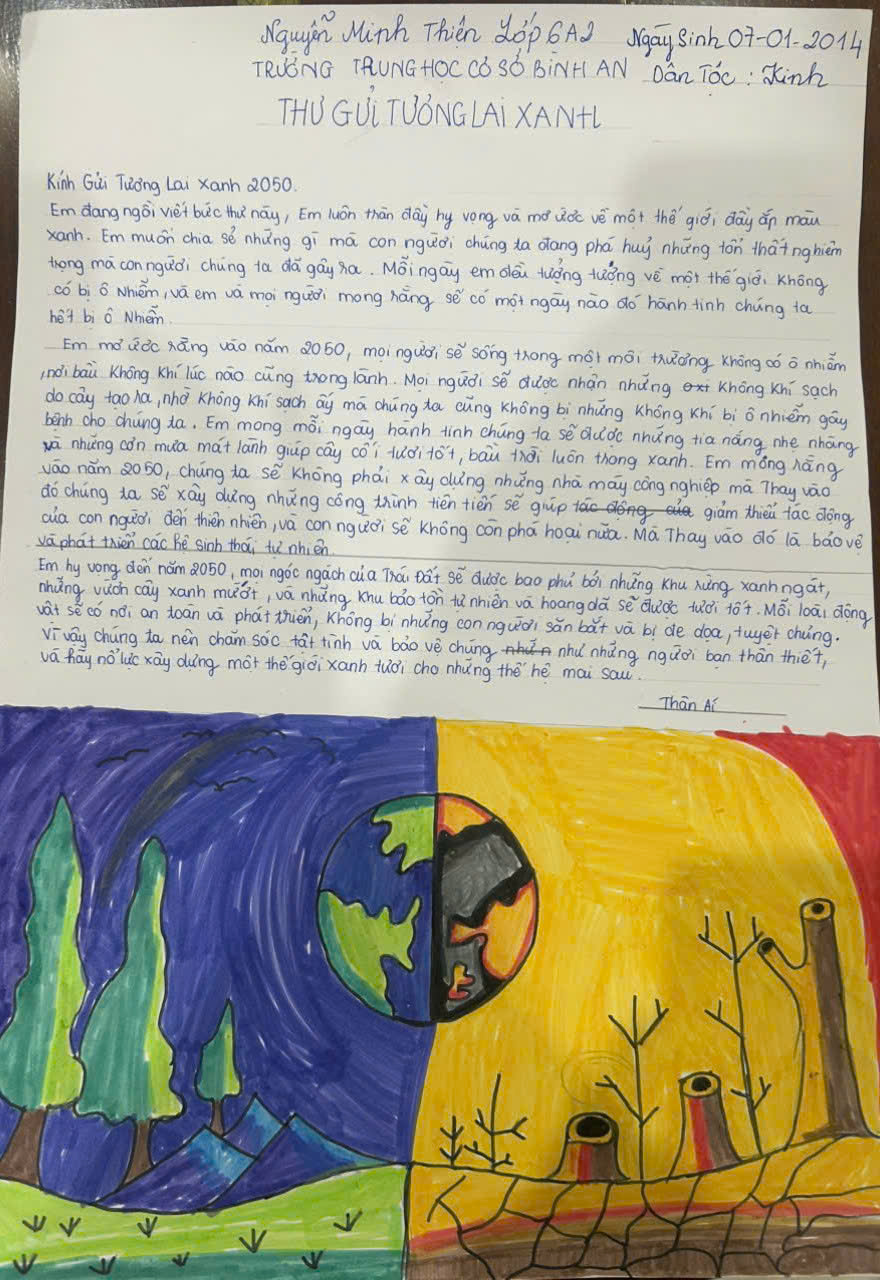 Nguyễn Minh Thiên Lớp 6A2 Ngày Sinh 07-01-2014
TRƯỜNG TRUNG HỌC CƠ SỞ BÌNH AN Dân Tộc : Kinh
THƯ GỬI TƯƠNG LAI XANH
Kính Gửi Tương Lai Xanh 2050.
Em đang ngồi viết bức thư này, Em luôn tràn đầy hy vọng và mơ ước về một thế giới đầy ắp màu
xanh. Em muốn chia sẻ những gì mà con người chúng ta đang phá huỷ những tổn thất nghiêm
trọng mà con người chúng ta đã gây ra. Mỗi ngày em đều tưởng tượng về một thế giới không
có bị ô nhiễm, và em và mọi người mong rằng sẽ có một ngày nào đó hành tinh chúng ta
hết bị ô nhiễm.
Em mơ ước rằng vào năm 2050, mọi người sẽ sống trong một môi trường không có ô nhiễm
, nơi bầu không khí lúc nào cũng trong lành. Mọi người sẽ được nhận những không khí sạch
do cây tạo ra, nhờ không khí sạch ấy mà chúng ta cũng không bị những không khí bị ô nhiễm gây
bệnh cho chúng ta. Em mong mỗi ngày hành tinh chúng ta sẽ được những tia nắng nhẹ nhàng
và những cơn mưa mát lành giúp cây cối tươi tốt, bầu trời luôn trong xanh. Em mong rằng
vào năm 2050, chúng ta sẽ không phải xây dựng những nhà máy công nghiệp mà Thay vào
đó chúng ta sẽ xây dựng những công trình tiên tiến sẽ giúp tác động của giảm thiểu tác động
của con người đến thiên nhiên, và con người sẽ không còn phá hoại nữa. Mà Thay vào đó là bảo vệ
và phát triển các hệ sinh thái tự nhiên.
Em hy vọng đến năm 2050, mọi ngóc ngách của Trái Đất sẽ được bao phủ bởi những khu rừng xanh ngát,
những vườn cây xanh mướt, và những khu bảo tồn tự nhiên và hoang dã sẽ được tươi tốt. Mỗi loài động
vật sẽ có nơi an toàn và phát triển, không bị những con người săn bắt và bị đe dọa, tuyệt chủng.
Vì vậy chúng ta nên chăm sóc tất tình và bảo vệ chúng như những người bạn thân thiết,
và hãy nỗ lực xây dựng một thế giới xanh tươi cho những thế hệ mai sau.
Thân Ái